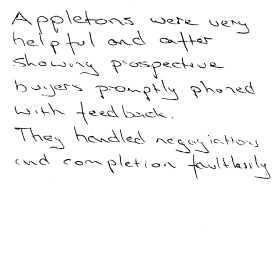 Appletons were very
helpful and after
showing prospective
buyers promptly phoned
with feedback.
They handled negogiations
and completion faultlessly